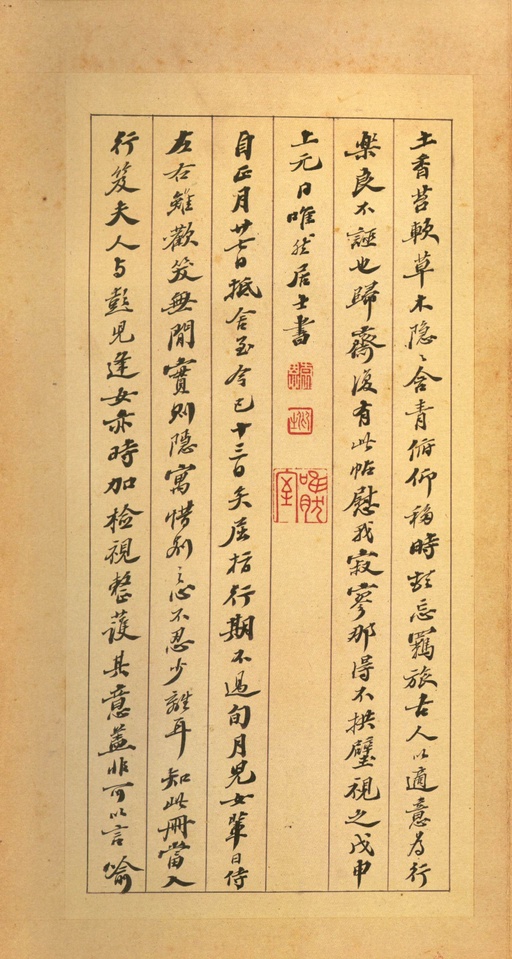 土香苔軟草木隱〻含青俯仰移時頗忘羈旅古人以適意為行
樂良不誣也歸齋復有此帖慰我寂寥那得不拱璧視之戊申
上元日唯然居士書
自正月廿七日抵舍至今已十三日矣屈指行期不過旬月兒女輩日侍
左右雖歡笑無閒實則隱寓惜別之心不忍少離耳知此冊當入
行笈夫人与彭兒逢女亦時加檢視整護其意蓋非可以言喻